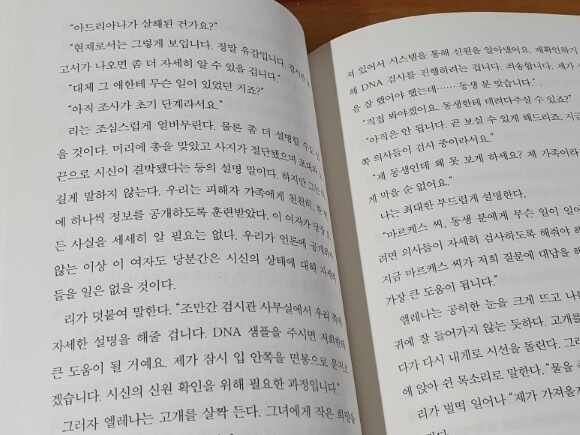 "아드리아나가 살해된 건가요?"
"현재로서는 그렇게 보입니다. 정말 유감입니다. 검시
고서가 나오면 좀 더 자세히 알 수 있을 겁니다."
"대체 그 애한테 무슨 일이 있었던 거죠?"
"아직 조사가 초기 단계라서요."
리는 조심스럽게 얼버무린다. 물론 좀 더 설명할 수도
을 것이다. 머리에 총을 맞았고 사지가 절단됐으며
끈으로 시신이 결박됐다는 등의 설명 말이다. 하지만 그는
길게 말하지 않는다. 우리는 피해자 가족에게 천천히, 한
에 하나씩 정보를 공개하도록 훈련받았다. 이 여자가
든 사실을 세세히 알 필요는 없다. 우리가 언론에 공개하
않는 이상 이 여자도 당분간은 시신의 상태에 대해
들을 일은 없을 것이다.
리가 덧붙여 말한다. "조만간 검시관 사무실에서 우리
자세한 설명을 해줄 겁니다. DNA 샘플을 주시면
큰 도움이 될 거예요. 제가 잠시 입 안쪽을 면봉으로
겠습니다. 시신의 신원 확인을 위해 필요한 과정입니다."
그러자 엘레나는 고개를 살짝 든다. 그녀에게 작은 희망
져 있어서 시스템을 통해 신원을 알아냈어요. 재확인하기
해 DNA 검사를 진행하려는 겁니다. 죄송합니다. 제가
을 잘 했어야 했는데…… 동생 분 맞습니다."
"직접 봐야겠어요. 동생한테 데려다주실 수 있죠?"
"아직은 안 됩니다. 곧 보실 수 있게 해드리죠. 지금
쪽 의사들이 검시 중이라서요."
"제 동생인데 왜 못 보게 하세요? 제 가족이라
게 막을 순 없어요."
나는 최대한 부드럽게 설명한다.
"마르케스 씨, 동생 분에게 무슨 일이 있
러면 의사들이 자세히 검사하도록 해줘야 해
지금 마르케스 씨가 저희 질문에 대답을 해
가장 큰 도움이 됩니다."
엘레나는 공허한 눈을 크게 뜨고 나를
귀에 잘 들어가지 않는 듯하다. 고개를
다가 다시 내게로 시선을 돌린다. 그러
에 앉아 쉰 목소리로 말한다. "물을
리가 벌떡 일어나 "제가 가져올